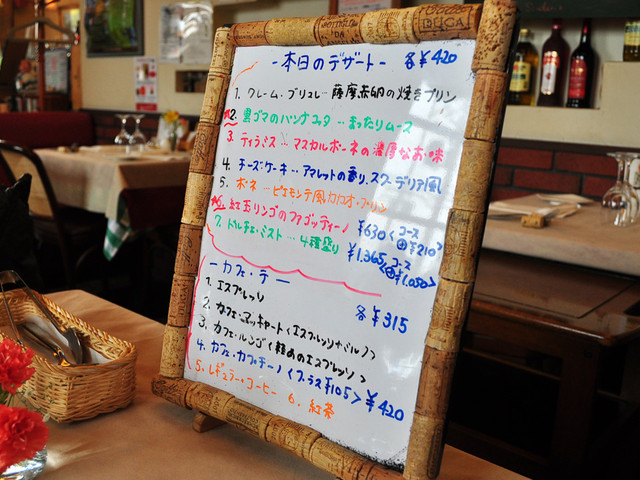 -本日のデザート- 各¥420
1. クレーム・ブリュレ…薩摩赤卵の焼きプリン
2. 黒ゴマのパンナコッタ…まったりムース
3. ティラミス…マスカルポーネの濃厚なお味
4. チーズケーキ…アマレットの香り、スクーデリア風
5. ボネ…ピエモンテ風カカオ・プリン
紅玉リンゴのファゴッティーノ ¥630<コース ¥210>
7. ドルチェ・ミスト…4種盛り ¥1,365<コース ¥1,050>
-カフェ・テー- 各¥315
1. エスプレッソ
2. カフェ・マッキャート<エスプレッソ+ミルク>
3. カフェ・ルンゴ<軽めのエスプレッソ>
4. カフェ・カプチーノ<プラス¥105> ¥420
5. レギュラー・コーヒー 6. 紅茶